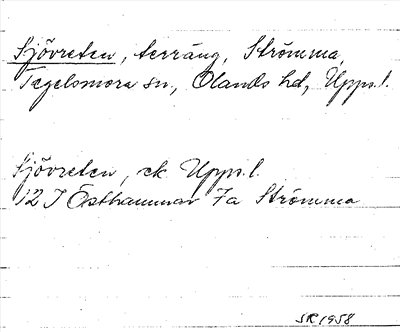 Sjövreten, terräng, Strömma,
Tegelsmora sn, Olands hd, Upps.l.
Sjövreten, ek Upps.l.
12 I Östhammar 7a Strömma
SR 1958